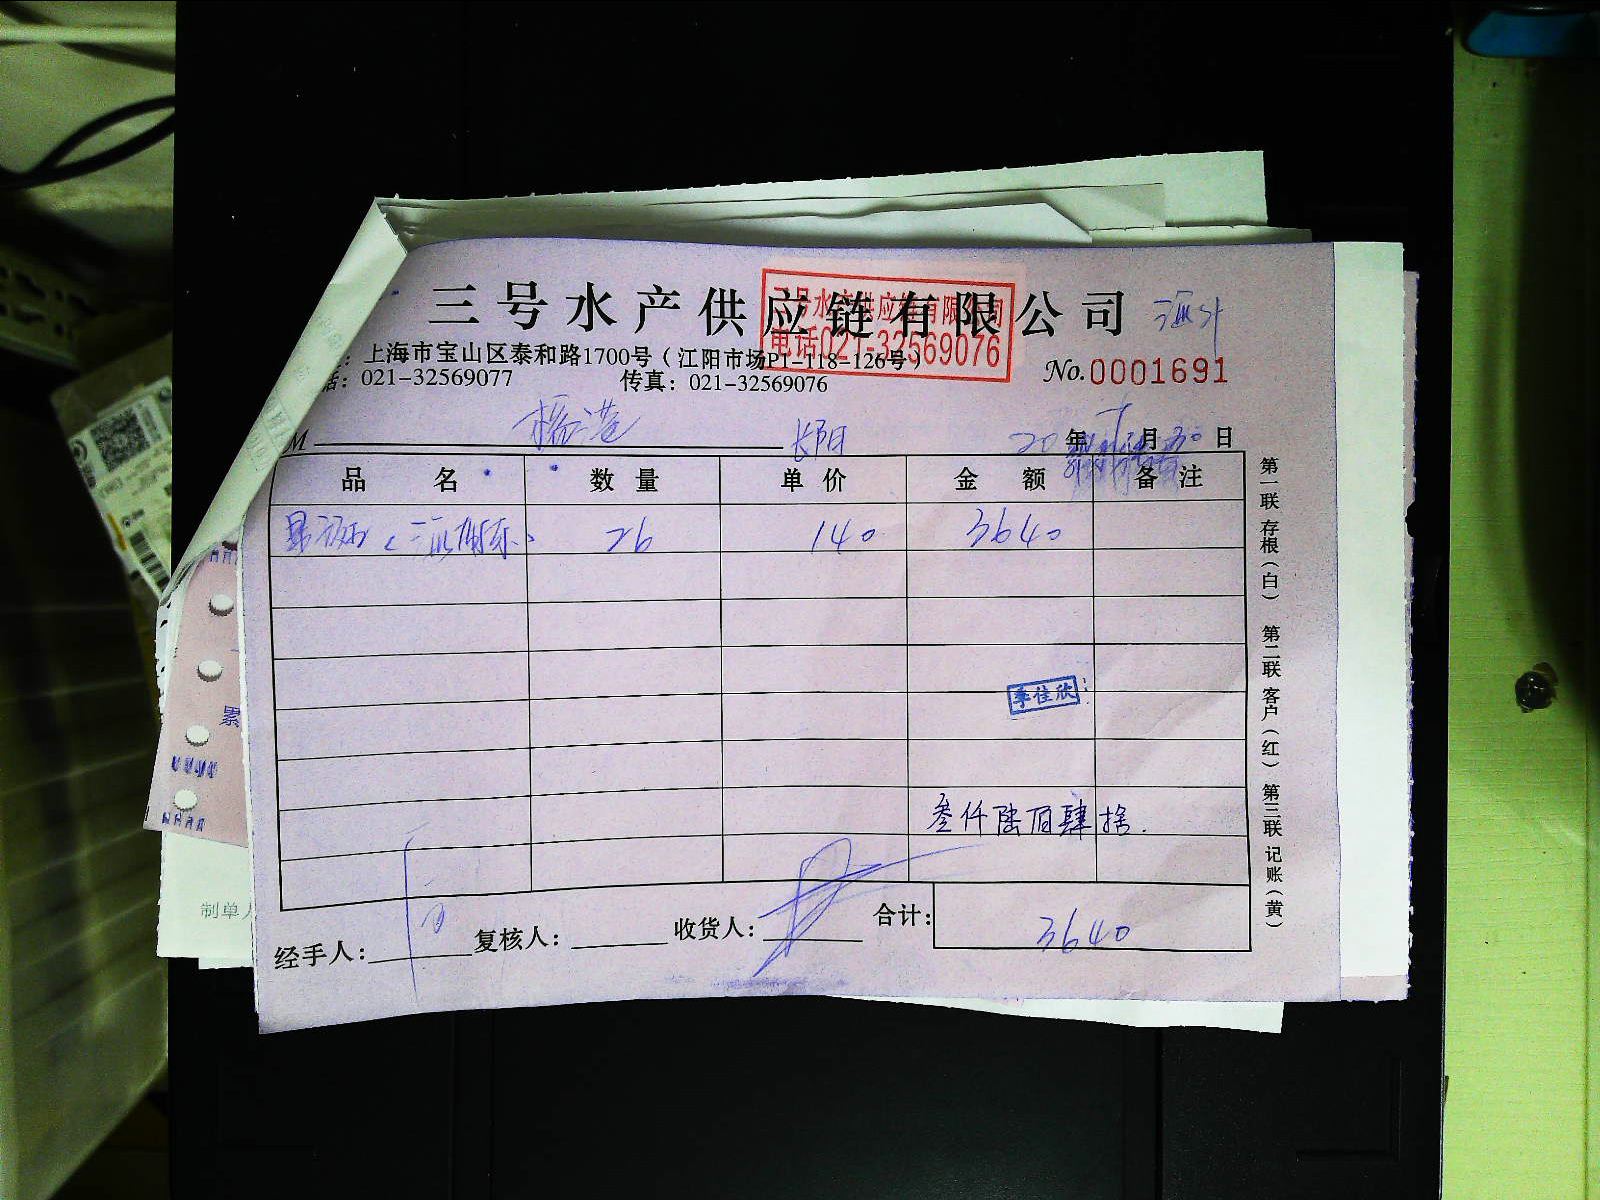 三号水产供应链有限公司
三号水产供应链有限公司
电话021-32569076
上海市宝山区泰和路1700号（江阳市场P1-118-126号）
话：021-32569077 传真：021-32569076
No.0001691
M
20 年 月 30 日
品 名 数 量 单 价 金 额 备 注
26 140 3640
季佳欣
叁仟陆佰肆拾
经手人： 复核人： 收货人： 合计：
3640
第一联 存根（白） 第二联 客户（红） 第三联 记账（黄）
累
制单人